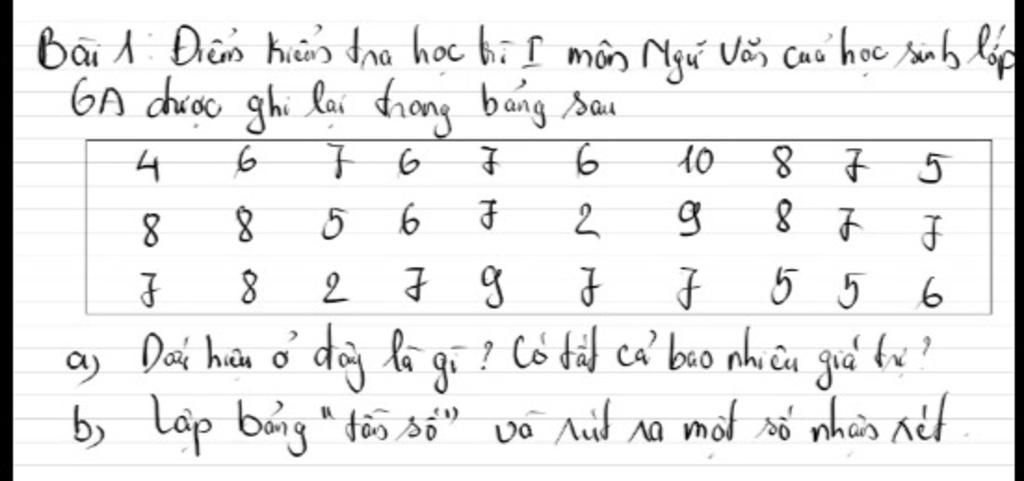 Bài 1: Điểm kiểm tra học kì I môn Ngữ Văn của học sinh lớp
6A được ghi lại trong bảng sau
4 6 7 6 7 6 10 8 7 5
8 8 5 6 7 2 9 8 7 7
7 8 2 7 9 7 7 5 5 6
a) Dấu hiệu ở đây là gì? Có tất cả bao nhiêu giá trị?
b) Lập bảng "tần số" và rút ra một số nhận xét.